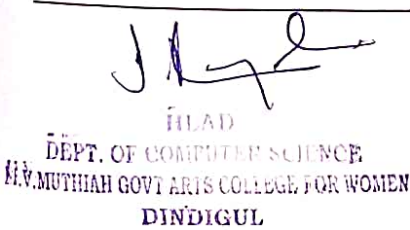 HEAD
DEPT. OF COMPUTER SCIENCE
M.V.MUTHIAH GOVT ARTS COLLEGE FOR WOMEN
DINDIGUL